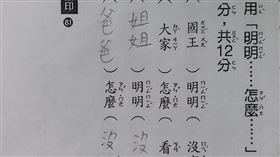 用「明明……怎麼……」
分，共12分
（國王）明明（沒
（大家）怎麼（看
（姐姐）明明（沒
（爸爸）怎麼（沒
印 81